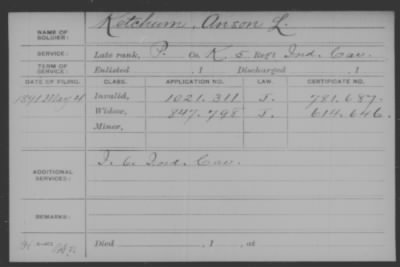 NAME OF SOLDIER: Ketchum, Anson L.
SERVICE: Late rank, P. Co. K, 5 Reg't Ind. Cav.
TERM OF SERVICE: Enlisted , 1 Discharged , 1
DATE OF FILING. CLASS. APPLICATION NO. LAW. CERTIFICATE NO.
1891 May 21 Invalid, 1021.311 J. 781.687
Widow, 847.798 J. 614.646
Minor,
ADDITIONAL SERVICES: I. 6. Ind. Cav.
REMARKS:
Died , 1 , at